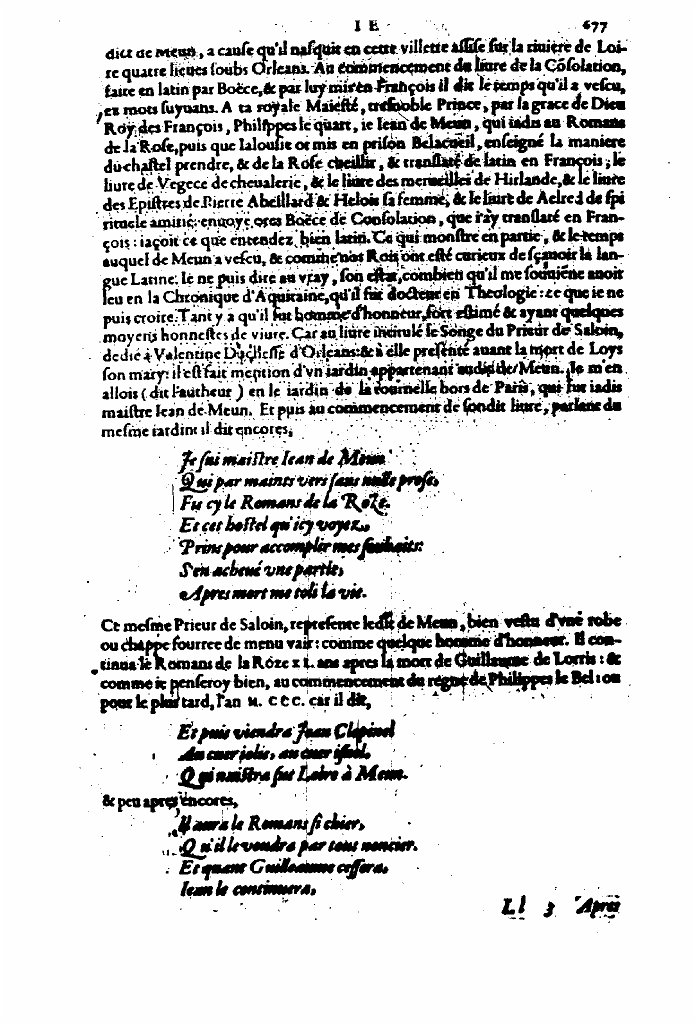 I E 677
dict de Meun, a cause qu'il nasquit en cette villette assise sur la riuiere de Loi-
re quatre lieues soubs Orleans. Au commencement du liure de la Cõsolation,
faite en latin par Boëce, & par luy mis en François il dit le temps qu'il a vescu,
ez mots suyuans. A ta royale Maiesté, tresnoble Prince, par la grace de Dieu
Roy des François, Philippes le quart, ie Iean de Meun, qui iadis au Romans
de la Rose, puis que Ialousie ot mis en prison Belacueil, enseigné la maniere
du chastel prendre, & de la Rose cueillir, & translaté de latin en François, le
liure de Vegece de cheualerie, & le liure des merueilles de Hirlande, & le liure
des Epistres de Pierre Abeillard & Helois sa femme, & le liure de Aelred de spi
rituele amitié: enuoye ores Boëce de Consolation, que i'ay translaté en Fran-
çois: iaçoit ce que entendez bien latin. Ce qui monstre en partie, & le temps
auquel de Meun a vescu, & comme nos Rois ont esté curieux de sçauoir la lan-
gue Latine. Ie ne puis dire au vray, son estat, combien qu'il me souuiéne auoir
leu en la Chronique d'Aquitaine, qu'il fut docteur en Theologie: ce que ie ne
puis croire. Tant y a qu'il fut homme d'honneur, fort estimé & ayant quelques
moyens honnestes de viure. Car au liure intitulé le Songe du Prieur de Saloin,
dedié à Valentine Duchesse d'Orleans: & à elle presenté auant la mort de Loys
son mary: il est fait mention d'vn iardin appartenant audit de Meun. Ie m'en
allois (dit l'autheur) en le iardin de la tournelle hors de Paris, qui fut iadis
maistre Iean de Meun. Et puis au commencement de sondit liure, parlant du
mesme iardin: il dit encores,
Je sui maistre Iean de Meun
Qui par maints vers sans nulle prose,
Fis cy le Romans de la Roze.
Et cet hostel qu'icy voyez,
Prins pour accomplir mes souhaits:
S'en acheué vne partie,
Apres mort me toli la vie.
Ce mesme Prieur de Saloin, represente ledit de Meun, bien vestu d'vne robe
ou chappe fourree de menu vair: comme quelque homme d'honneur. Il con-
tinua le Romans de la Roze x l. ans apres la mort de Guillaume de Lorris: &
comme ie penseroy bien, au commencement du regne de Philippes le Bel: ou
pour le plus tard, l'an M. CCC. car il dit,
Et puis viendra Jean Clopinel
Au cuer jolis, au cuer isnel,
Qui naistra sur Loire à Meun.
& peu apres encores,
Il aura le Romans si chier,
Qu'il le voudra par tous noncier.
Et quant Guillaume cessera,
Iean le continuera,
Ll 3 Apres